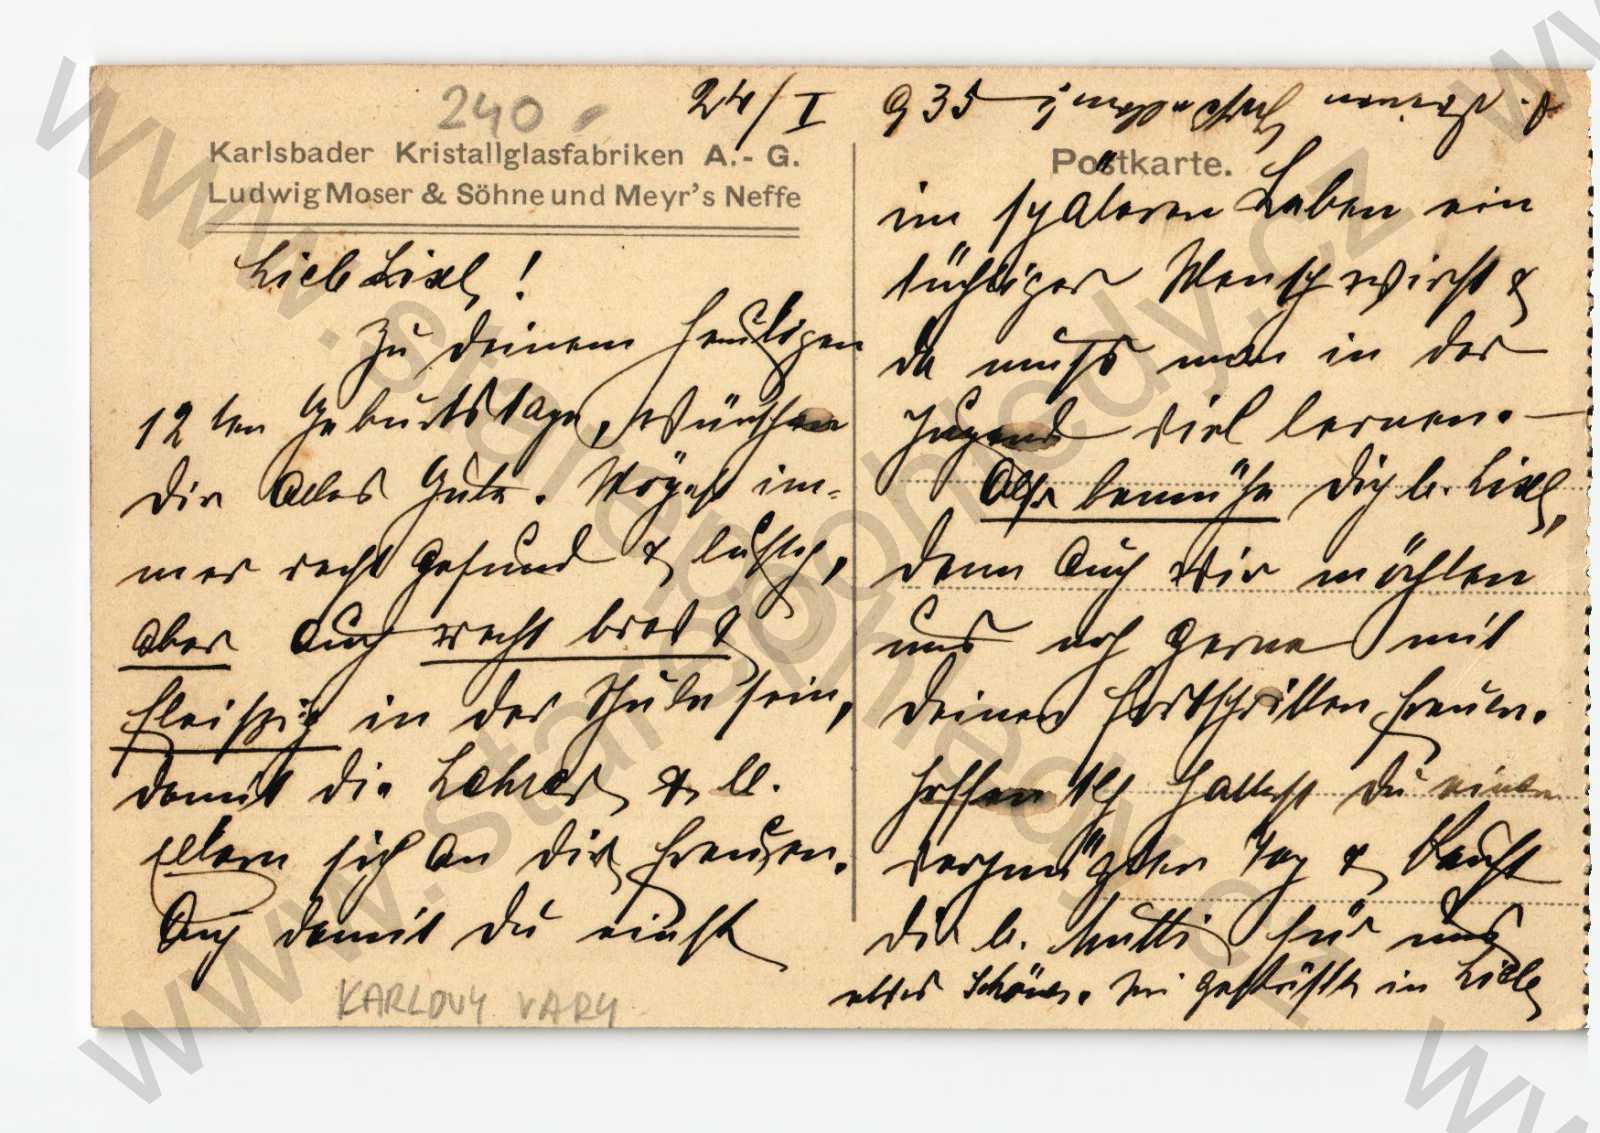 240.-
24/I 935
Karlsbader Kristallglasfabriken A.-G.
Ludwig Moser & Söhne und Meyr's Neffe
Postkarte.
Liebe Lisl!
Zu deinem heutigen
12ten Geburtstage, wünschen
Dir Alles Gute. Mögest im-
mer recht gesund & lustig,
aber auch recht brav &
fleißig in der Schule sein,
damit die Lehrer & l.
Eltern sich an dir freuen.
Auch damit du einst
im späteren Leben ein
tüchtiger Mensch wirst &
da muss man in der
Jugend viel lernen.—
Also bemühe Dich l. Lisl,
denn auch wir möchten
uns noch gerne mit
deinen Fortschritten freuen.
Hoffentlich hattest du einen
vergnügten Tag &
die l. Mutti für uns
alles Schöne. Sei geküsst in Liebe
KARLOVY VARY
www.starepohledy.cz